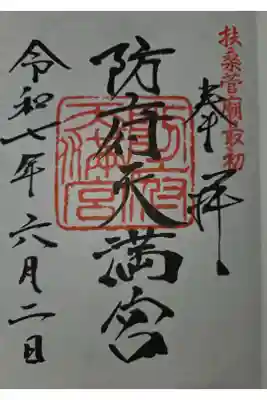 扶桑菅廟最初
奉拝
防府天満宮
防府天満宮
令和七年六月二日